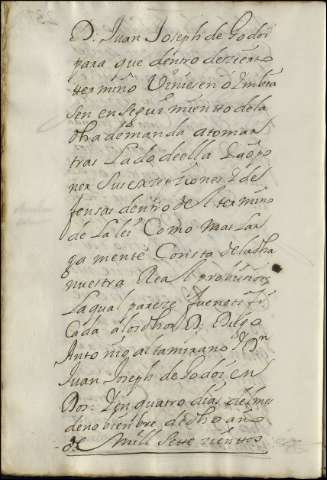 D. Juan Joseph de Godoi
para que dentro de zierto
termino Viniesen o Imbia
sen en seguimiento de la
dha demanda a tomar
tras Lado de ella Y a opo
ner sus exsepziones I de
fensas dentro de el termino
de la lei Como mas Lar
ga mente Consta de la dha
nuestra Real probision
La qual pareze fue notifi
Cada a los dhos Dn Diego
Antonio altamirano Y Dn
Juan Joseph de Godoi en
dos Y en quatro dias del mes
de nobiembre de dho año
de Mill Sette zientos